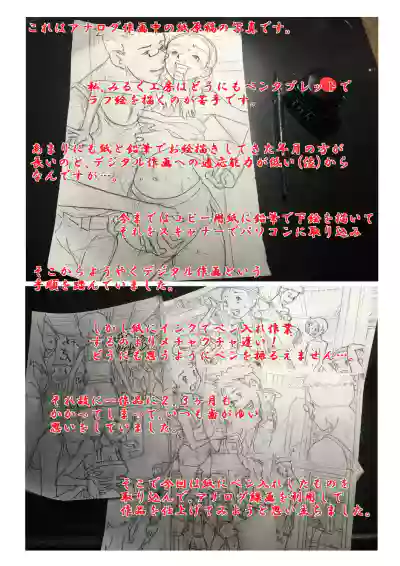 これはアナログ作画中の紙原稿の写真です。
私、みるく工房はどうにもペンタブレットで
ラフ絵を描くのが苦手です。
あまりにも紙と鉛筆でお絵描きしてきた年月の方が
長いのと、デジタル作画への適応能力が低い(笑)から
なんですが…。
今まではコピー用紙に鉛筆で下絵を描いて
それをスキャナーでパソコンに取り込み
そこからようやくデジタル作画という
手順を踏んでいました。
しかし紙にインクでペン入れ作業
するのとはメチャクチャ違い!
どうにも思うようにペンを振るえません…。
それ故に一作品に2,3ヶ月も
かかってしまって、いつも歯がゆい
思いをしていました。
そこで今回は紙にペン入れしたものを
取り込んで、アナログ線画を利用して
作品を仕上げてみようと思い立ちました。